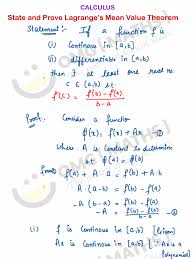 CALCULUS
State and Prove Lagrange's Mean Value Theorem
Statement:- If a function f is
(i) Continous in [a,b]
(ii) differentiable in (a,b)
then ∃ at least one real no.
c ∈ (a,b) s.t
f'(c) = f(b) - f(a) / b - a
Proof: Consider a function
φ(x) = f(x) + Ax —①
Where A is constant to determine
s.t φ(a) = φ(b)
f(a) + A·a = f(b) + A·b
A·(a-b) = f(b) - f(a)
-A(b-a) = f(b) - f(a)
-A = f(b) - f(a) / b-a —②
(i) f is continous in [a,b] (given)
Ax is continous in [a,b] (∵ Ax is a
Polynomial)